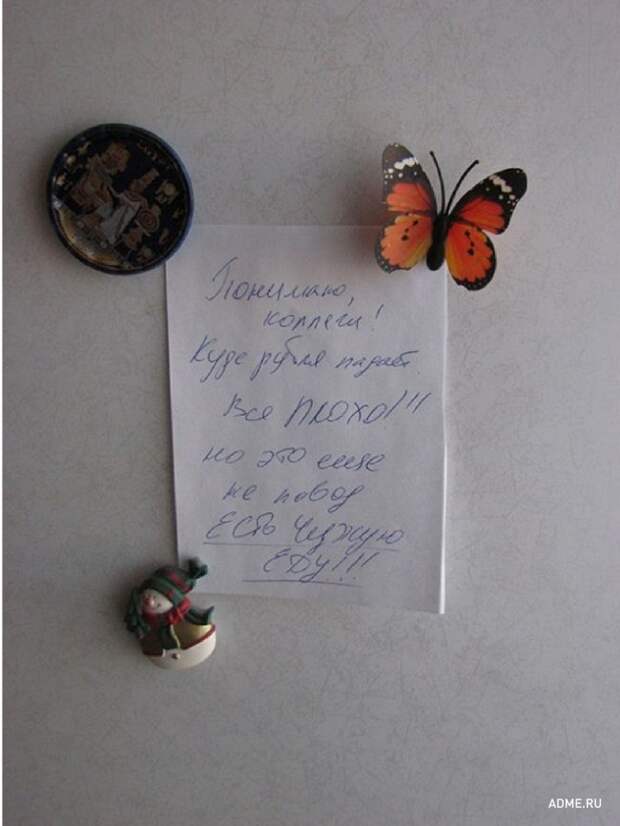 Понимаю,
коллеги!
Курс рубля падает.
Все ПЛОХО!!!
но это еще
не повод
ЕСТЬ Чужую
ЕДУ!!!
ADME.RU